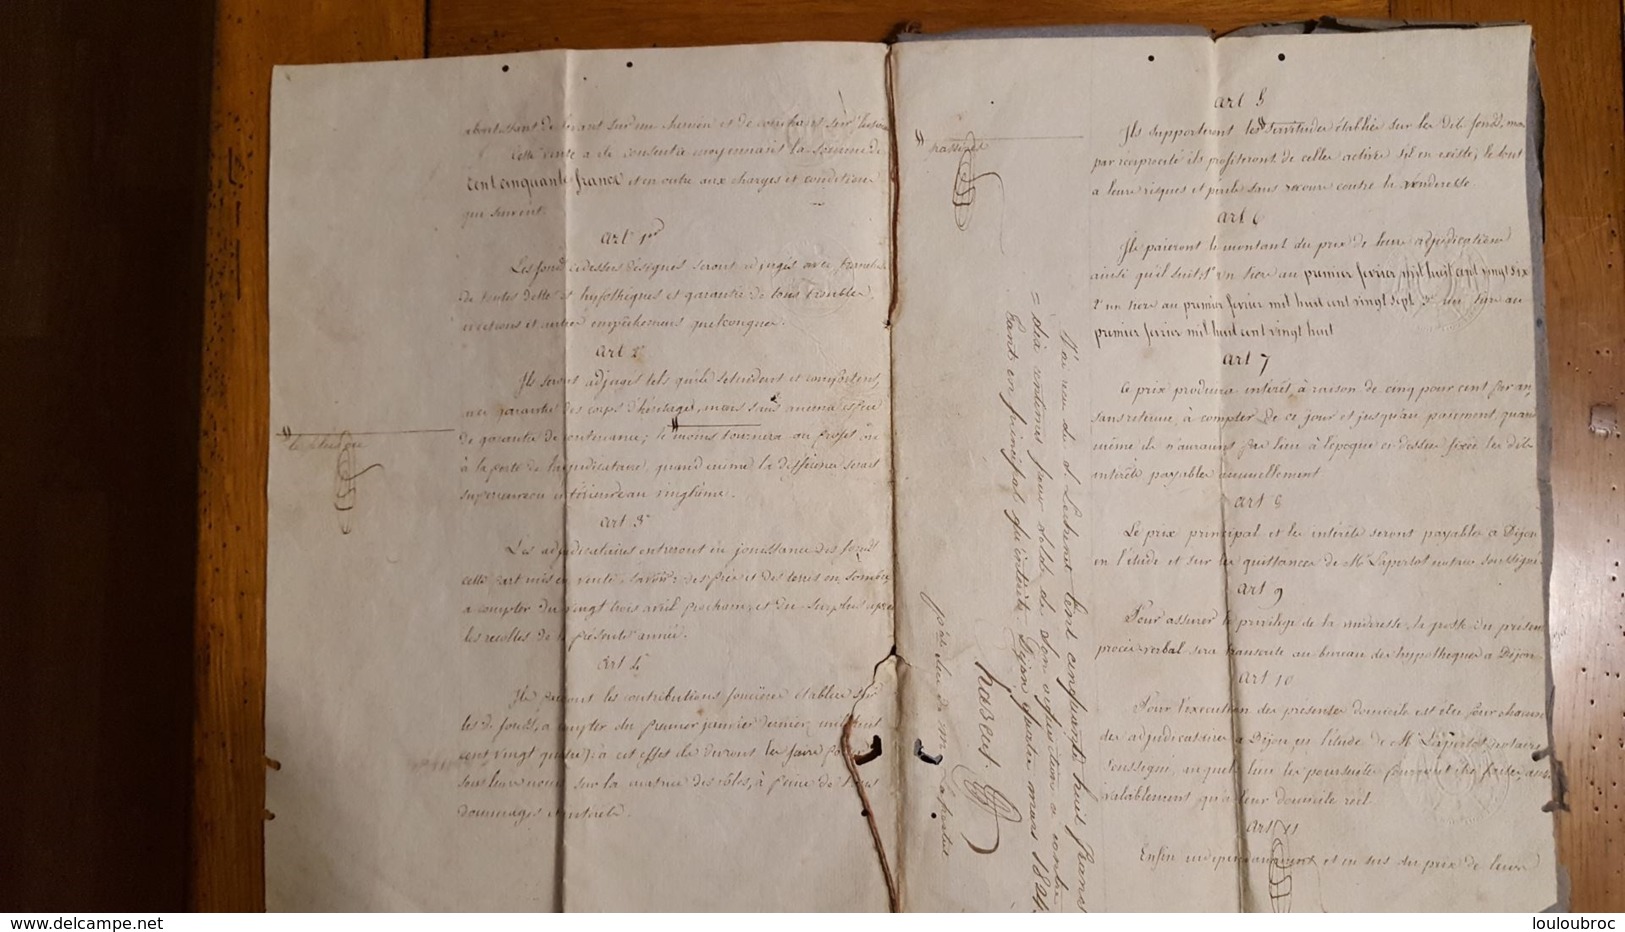 aboutissant de levant sur un chemin et de couchant sur
Cette vente a été consentie moyennant la somme de
cent cinquante francs et en outre aux charges et conditions
qui suivent.
art 1er
Les fonds cidessus désignés seront adjugés avec franchise
de toutes dettes et hypothèques et garantie de tous troubles,
évictions et autres empêchemens quelconques.
art 2e
Ils seront adjugés tels qu'ils s'etendent et comportent,
avec garantie des corps d'héritages, mais sans aucune espèce
de garantie de contenance; le moins tournera au profit ou
à la perte de l'adjudicataire, quand même la différence serait
supérieure ou inférieure au vingtième.
art 3e
Les adjudicataires entreront en jouissance des fonds
cette part mis en vente savoir: des prés et des terres en sombre,
a compter du vingt trois avril prochain, et du surplus après
les recoltes de la présente année.
art 4e
Ils paieront les contributions foncières établies sur
les d. fonds, a compter du premier janvier dernier, mil huit
cent vingt quatre; à cet effet ils devront les faire porter
sous leurs noms sur la matrice des rôles, à peine de tous
dommages et intérêts.
art 5
Ils supporteront les servitudes établies sur les dits fonds, mais
par réciprocité ils profiteront de celles actives s'il en existe; le tout
a leurs risques et perils sans recours contre la venderesse.
art 6
Ils paieront le montant du prix de leurs adjudications
ainsi qu'il suit 1º un tiers au premier fevrier mil huit cent vingt six
2º un tiers au premier fevrier mil huit cent vingt sept 3º un tiers au
premier fevrier mil huit cent vingt huit
art 7
Ce prix produira intérêt à raison de cinq pour cent par an,
sans retenue, à compter de ce jour et jusqu'au paiement, quand
même ils n'auraient pas lieu à l'époque ci dessus fixée les dits
intérêts payables annuellement
art 8
Le prix principal et les intérêts seront payables à Dijon
en l'étude et sur les quittances de Me Laperlot notaire soussigné.
art 9
Pour assurer le privilege de la venderesse, la grosse du présent
procès-verbal sera transcrite au bureau des hypotheques a Dijon.
art 10
Pour l'execution des presentes domicile est élu pour chacun
des adjudicataires a Dijon, en l'étude de Me Laperlot notaire
soussigné, auquel lieu les poursuites pourront être faites, aussi
valablement qu'a leur domicile réel.
art 11
Enfin independamment et en sus du prix de leurs
J'ai reçu de d. cent cinquante huit francs
dix centimes pour solde de son acquisition ci contre
tant en principal qu'intérêts. Dijon quatre mars 1824.
louloubroc
www.delcampe.net